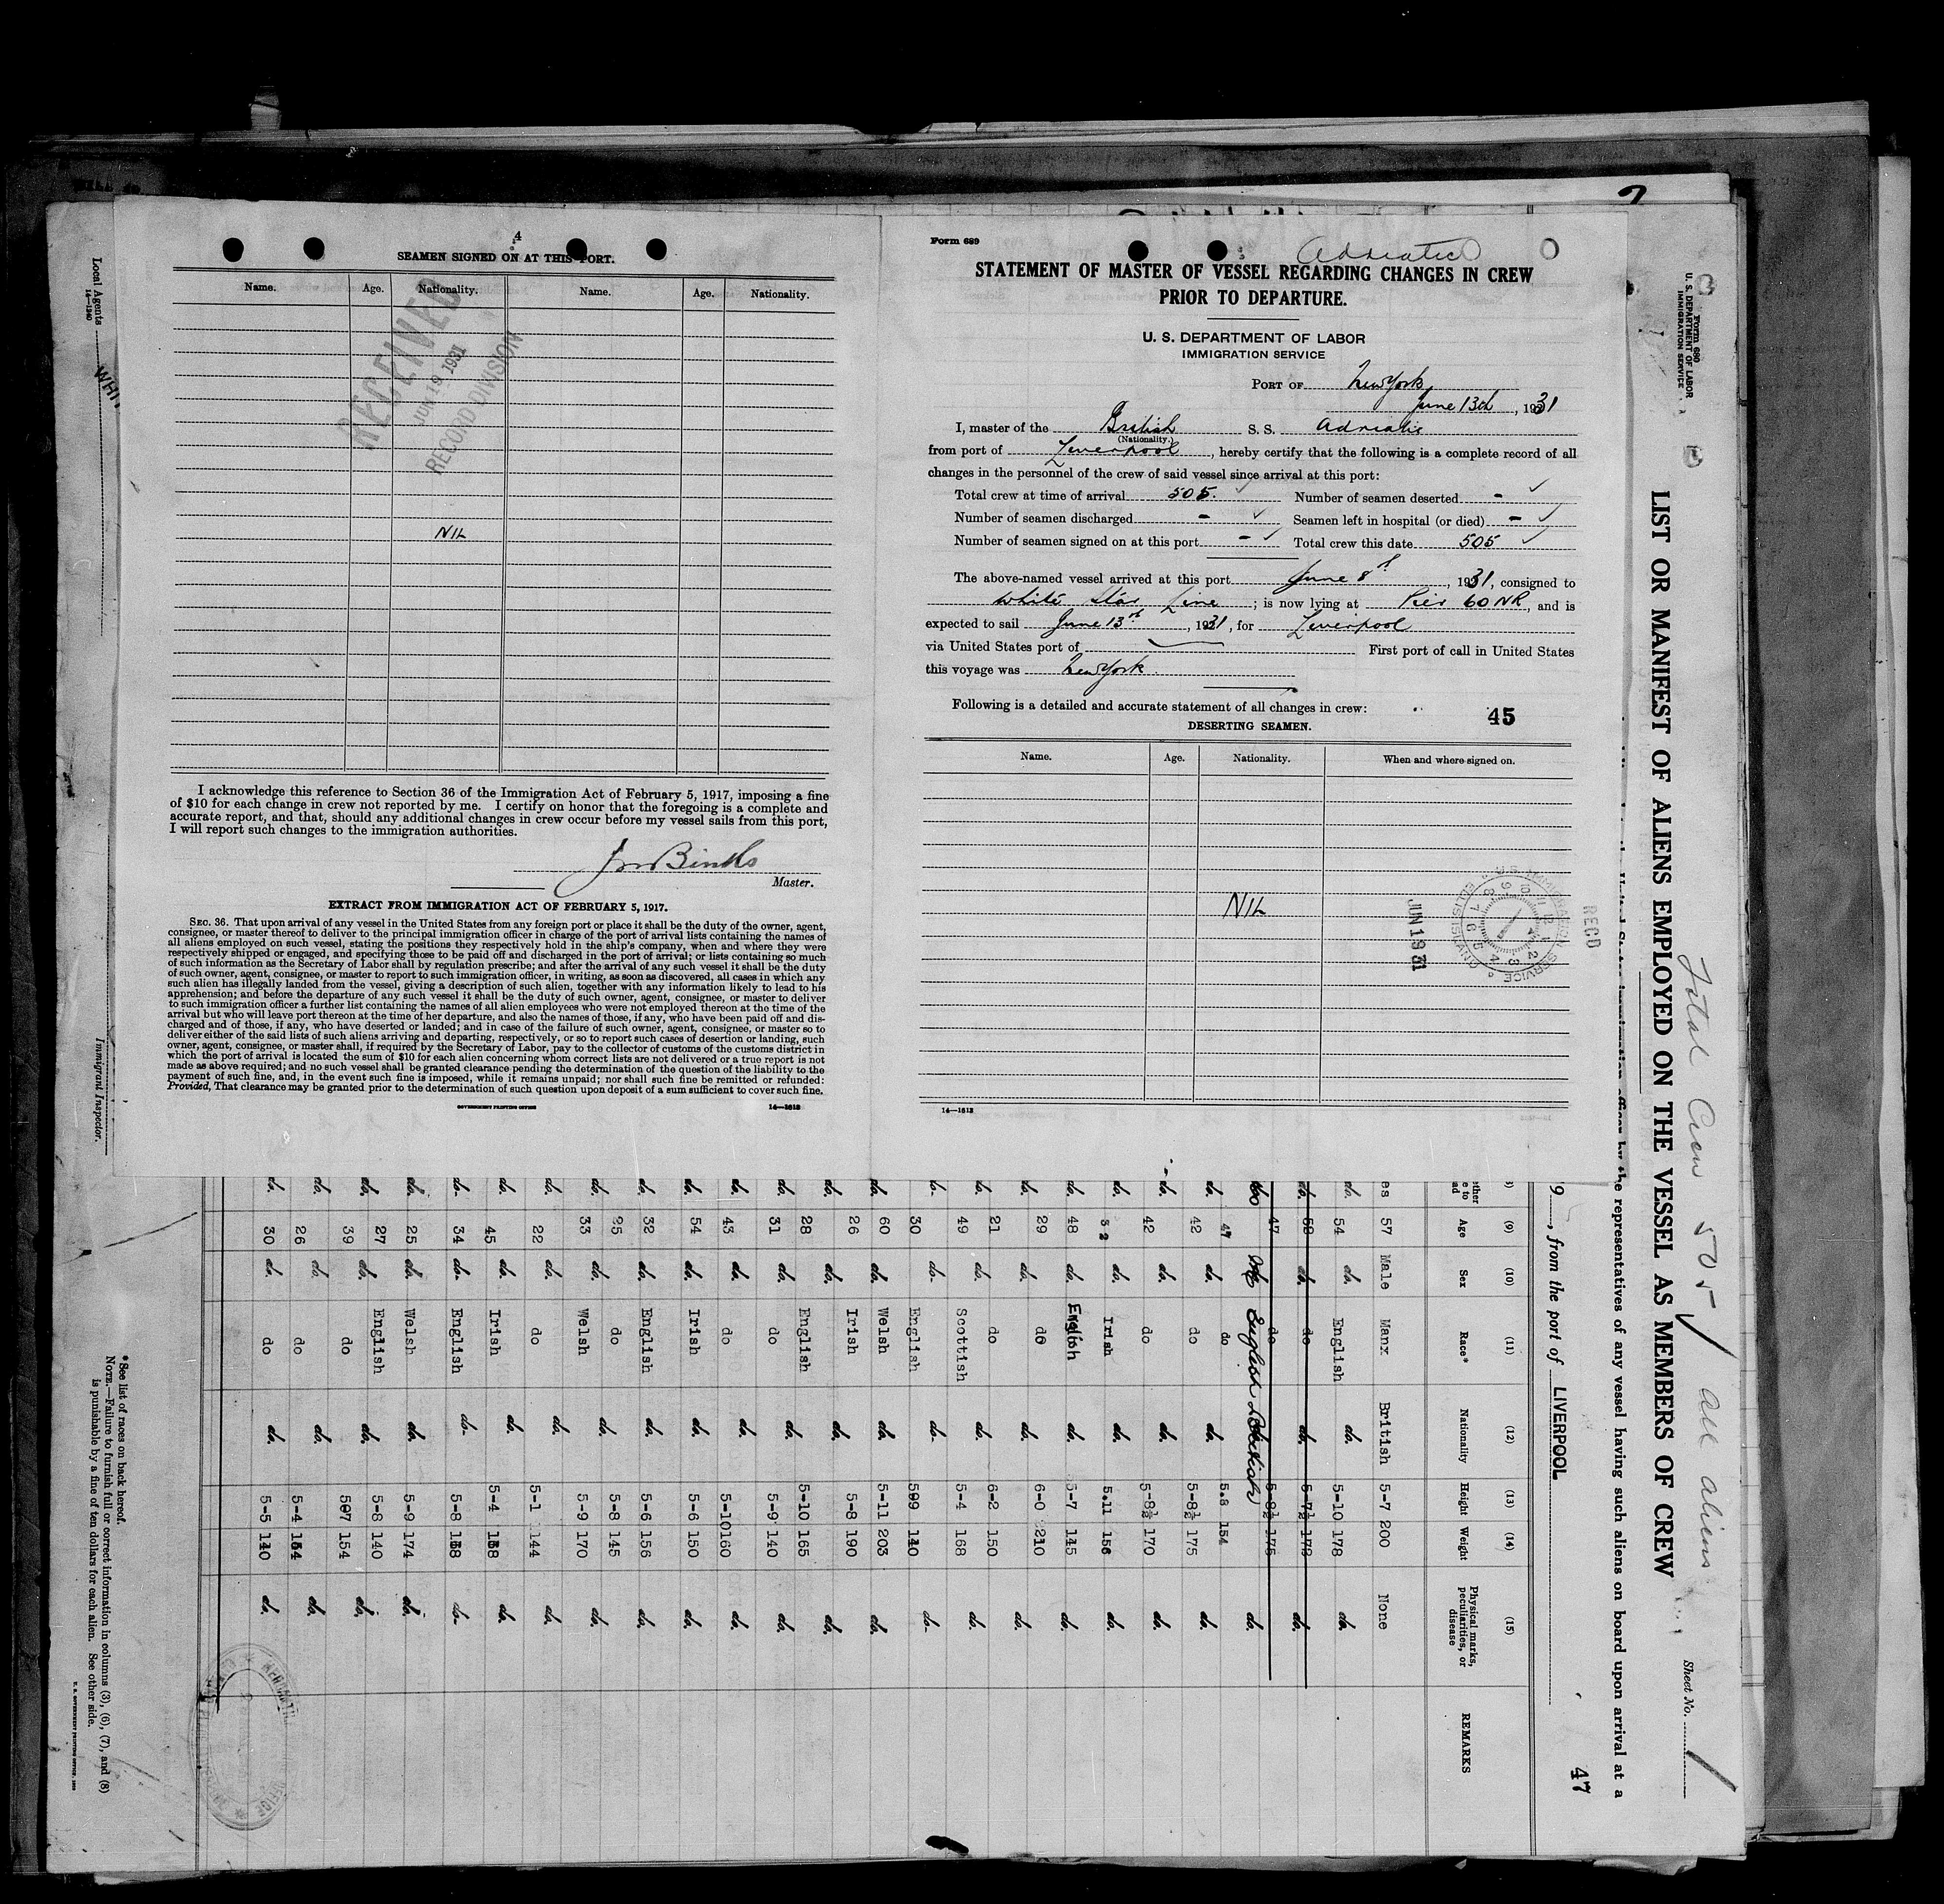 4
SEAMEN SIGNED ON AT THIS PORT.
Name. Age. Nationality. Name. Age. Nationality.
RECEIVED
JUN 19 1931
RECORD DIVISION
NIL
I acknowledge this reference to Section 36 of the Immigration Act of February 5, 1917, imposing a fine
of $10 for each change in crew not reported by me. I certify on honor that the foregoing is a complete and
accurate report, and that, should any additional changes in crew occur before my vessel sails from this port,
I will report such changes to the immigration authorities.
Master.
EXTRACT FROM IMMIGRATION ACT OF FEBRUARY 5, 1917.
SEC. 36. That upon arrival of any vessel in the United States from any foreign port or place it shall be the duty of the owner, agent,
consignee, or master thereof to deliver to the principal immigration officer in charge of the port of arrival lists containing the names of
all aliens employed on such vessel, stating the positions they respectively hold in the ship's company, when and where they were
respectively shipped or engaged, and specifying those to be paid off and discharged in the port of arrival; or lists containing so much
of such information as the Secretary of Labor shall by regulation prescribe; and after the arrival of any such vessel it shall be the duty
of such owner, agent, consignee, or master to report to such immigration officer, in writing, as soon as discovered, all cases in which any
such alien has illegally landed from the vessel, giving a description of such alien, together with any information likely to lead to his
apprehension; and before the departure of any such vessel it shall be the duty of such owner, agent, consignee, or master to deliver
to such immigration officer a further list containing the names of all alien employees who were not employed thereon at the time of the
arrival but who will leave port thereon at the time of her departure, and also the names of those, if any, who have been paid off and dis-
charged and of those, if any, who have deserted or landed; and in case of the failure of such owner, agent, consignee, or master so to
deliver either of the said lists of such aliens arriving and departing, respectively, or so to report such cases of desertion or landing, such
owner, agent, consignee, or master shall, if required by the Secretary of Labor, pay to the collector of customs of the customs district in
which the port of arrival is located the sum of $10 for each alien concerning whom correct lists are not delivered or a true report is not
made as above required; and no such vessel shall be granted clearance pending the determination of the question of the liability to the
payment of such fine, and, in the event such fine is imposed, while it remains unpaid; nor shall such fine be remitted or refunded:
Provided, That clearance may be granted prior to the determination of such question upon deposit of a sum sufficient to cover such fine.
GOVERNMENT PRINTING OFFICE 14—1613
Form 689
Adriatic
STATEMENT OF MASTER OF VESSEL REGARDING CHANGES IN CREW
PRIOR TO DEPARTURE.
U. S. DEPARTMENT OF LABOR
IMMIGRATION SERVICE
PORT OF New York
June 13th, 1931
I, master of the British S. S. Adriatic
(Nationality.)
from port of Liverpool, hereby certify that the following is a complete record of all
changes in the personnel of the crew of said vessel since arrival at this port:
Total crew at time of arrival 505. Number of seamen deserted -
Number of seamen discharged - Seamen left in hospital (or died) -
Number of seamen signed on at this port - Total crew this date 505
The above-named vessel arrived at this port June 8th, 1931, consigned to
White Star Line; is now lying at Pier 60 NR, and is
expected to sail June 13th, 1931, for Liverpool
via United States port of First port of call in United States
this voyage was New York
Following is a detailed and accurate statement of all changes in crew:
45
DESERTING SEAMEN.
Name. Age. Nationality. When and where signed on.
NIL
RECD
14—1613
Form 680
U. S. DEPARTMENT OF LABOR
IMMIGRATION SERVICE
Total Crew 505 All aliens
Sheet No. 1
LIST OR MANIFEST OF ALIENS EMPLOYED ON THE VESSEL AS MEMBERS OF CREW
the representatives of any vessel having such aliens on board upon arrival at a
, from the port of LIVERPOOL
47
(9) (10) (11) (12) (13) (14) (15)
Age Sex Race* Nationality Height Weight Physical marks, peculiarities, or disease REMARKS
57 Male Manx British 5-7 200 None
do. 54 do. English do. 5-10 178 do.
do. do. do do. 5-7½ do.
47 do 5-8½ 175
English British do.
do. 47 do. do do. 154 do.
do. 42 do. do do. 5-8½ 175 do.
do. 42 do. do do. 5-8½ 170 do.
do. 32 do. Irish do. 5.11 156 do.
do. 48 do. English do. 5-7 145 do.
do. 29 do. do do. 6-0 210 do.
do. 21 do. do do. 6-2 150 do.
do. 49 do. Scottish do. 5-4 168 do.
do. 30 do. English do. 140 do.
do. 60 do. Welsh do. 5-11 203 do.
do. 26 do. Irish do. 5-8 190 do.
do. 28 do. English do. 5-10 165 do.
do. 31 do. do do. 5-9 140 do.
do. 43 do. do do. 5-10 160 do.
do. 54 do. Irish do. 5-6 150 do.
do. 32 do. English do. 5-6 156 do.
do. 25 do. do do. 5-8 145 do.
do. 33 do. Welsh do. 5-9 170 do.
do. 22 do. do do. 5-1 144 do.
do. 45 do. Irish do. 5-4 do.
do. 34 do. English do. 5-8 do.
do. 25 do. Welsh do. 5-9 174 do.
do. 27 do. English do. 5-8 140 do.
39 do 154
do. 26 do. do do. 5-4 do.
do. 30 do. do do. 5-5 do.
*See list of races on back hereof.
NOTE.—Failure to furnish full or correct information in columns (3), (6), (7), and (8)
is punishable by a fine of ten dollars for each alien. See other side.
Local Agents
14—1240
Immigrant Inspector.